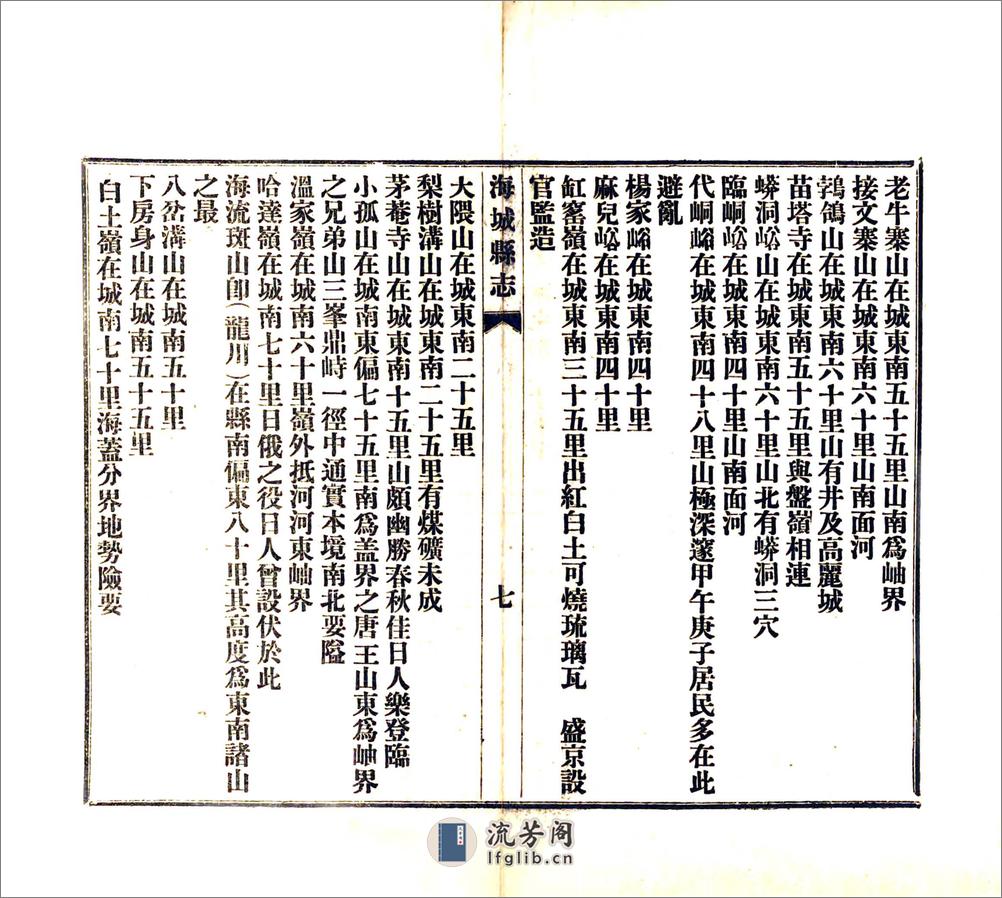 老牛寨山在城東南五十五里山南爲岫界
接文寨山在城東南六十里山南面河
鵓鴿山在城東南六十里山有井及高麗城
苗塔寺在城東南五十五里與盤嶺相連
蟒洞峪山在城東南六十里山北有蟒洞三穴
臨峒峪在城東南四十里山南面河
代峒峪在城東南四十八里山極深邃甲午庚子居民多在此
避亂
楊家峪在城東南四十里
麻兒峪在城東南四十里
缸窰嶺在城東南三十五里出紅白土可燒琉璃瓦　盛京設
官監造
海城縣志
七
大隈山在城東南二十五里
梨樹溝山在城東南二十五里有煤礦未成
茅菴寺山在城東南十五里山頗幽勝春秋佳日人樂登臨
小孤山在城南東偏七十五里南爲盖界之唐王山東爲岫界
之兄弟山三峯鼎峙一徑中通實本境南北要隘
溫家嶺在城南六十里嶺外抵河河東岫界
哈達嶺在城南七十里日俄之役日人曾設伏於此
海流斑山卽（龍川）在縣南偏東八十里其高度爲東南諸山
之最
八岔溝山在城南五十里
下房身山在城南五十五里
白土嶺在城南七十里海蓋分界地勢險要
流芳阁
lfglib.cn